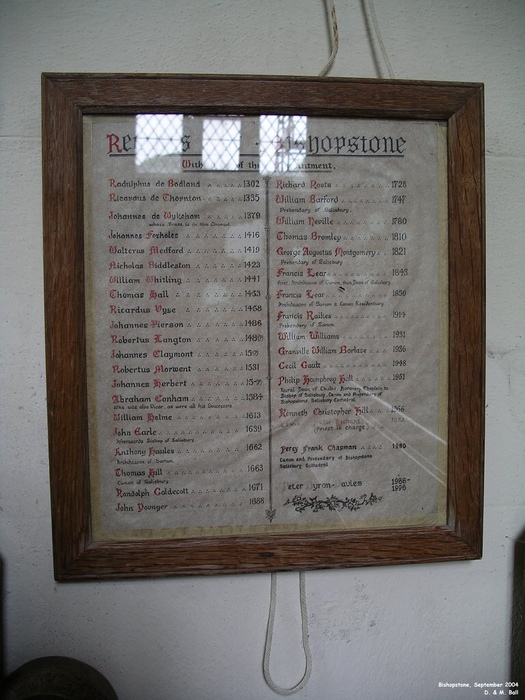 Bishopstone
With of the
Radulphus de Bodland 1302
Ricardus de Thornton 1335
Johannes de Wykeham 1379
Johannes Foxholes 1416
Walterus Medford 1419
Nicholas Biddleston 1423
William Whitling 1441
Thomas Hall 1453
Ricardus Vyse 1458
Johannes Pierson 1486
Robertus Langton
Johannes Claymont
Robertus Morwent 1531
Johannes Herbert
Abraham Conham 1584
William Holme 1613
John Earle 1639
Afterwards Bishop of Salisbury
Anthony 1662
Archdeacon of Sarum
Thomas Hill 1663
Canon of Salisbury
Randolph Caldecott 1671
John Younger 1688
Richard Roots 1728
William Barford 1747
Prebendary of Salisbury
William Neville 1780
Thomas Bromley 1810
George Augustus Montgomery 1821
Prebendary of Salisbury
Francis Lear 1843
Francis Lear 1850
Archdeacon of Sarum & Canon Residentiary
Francis Raikes 1914
Prebendary of Sarum
William Williams 1931
Granville William Borlase 1936
Cecil Gault 1948
Philip Humphrey Hall 1951
Rural Dean of Chalke
Bishopstone Salisbury Cathedral
Kenneth Christopher Hill
Priest in charge
Percy Frank Chapman
Canon and Prebendary of Bishopstone
Salisbury Cathedral
1986-
1996
Bishopstone, September 2004
D. & M. Ball